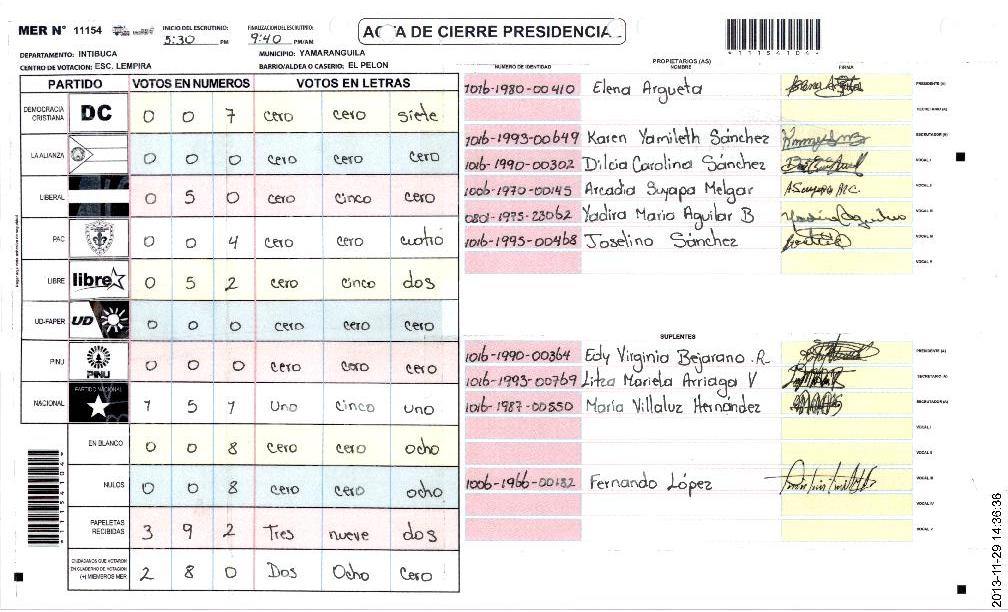 MER N° 11154
INICIO DEL ESCRUTINIO:
5:30 PM
FINALIZACION DEL ESCRUTINIO:
9:40 PM/AM
ACTA DE CIERRE PRESIDENCIA
*11154104*
DEPARTAMENTO: INTIBUCA
MUNICIPIO: YAMARANGUILA
CENTRO DE VOTACION: ESC. LEMPIRA
BARRIO/ALDEA O CASERIO: EL PELON
PARTIDO VOTOS EN NUMEROS VOTOS EN LETRAS
DEMOCRACIA CRISTIANA DC 0 0 7 cero cero siete
LA ALIANZA 0 0 0 cero cero cero
LIBERAL 0 5 0 cero cinco cero
PAC 0 0 4 cero cero cuatro
LIBRE libre 0 5 2 cero cinco dos
UD-FAPER UD 0 0 0 cero cero cero
PINU PINU 0 0 0 cero cero cero
NACIONAL PARTIDO NACIONAL 1 5 1 Uno cinco uno
EN BLANCO 0 0 8 cero cero ocho
NULOS 0 0 8 cero cero ocho
PAPELETAS RECIBIDAS 3 9 2 Tres nueve dos
CIUDADANOS QUE VOTARON EN CUADERNO DE VOTACION (+) MIEMBROS MER 2 8 0 Dos Ocho cero
*11154104*
PROPIETARIOS (AS)
NUMERO DE IDENTIDAD NOMBRE FIRMA
1016-1980-00410 Elena Argueta PRESIDENTE (A)
SECRETARIO (A)
1016-1993-00649 Karen Yamileth Sánchez ESCRUTADOR (A)
1016-1990-00302 Dilcia Carolina Sánchez VOCAL I
1006-1970-00145 Arcadia Suyapa Melgar VOCAL II
0801-1975-23062 Yadira Maria Aguilar B VOCAL III
1016-1993-00468 Joselino Sánchez VOCAL IV
VOCAL V
SUPLENTES
1016-1990-00364 Edy Virginia Bejarano .R. PRESIDENTE (A)
1016-1993-00769 Litza Mariela Arriaga V SECRETARIO (A)
1016-1987-00550 María Villaluz Hernández ESCRUTADOR (A)
VOCAL I
VOCAL II
1006-1966-00182 Fernando López VOCAL III
VOCAL IV
VOCAL V
2013-11-29 14:36:36